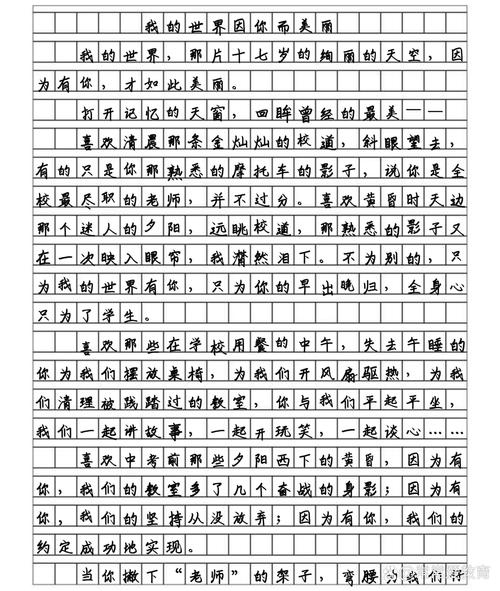 我的世界因你而美丽
我的世界，那片十七岁的绚丽的天空，因
为有你，才如此美丽。
打开记忆的天窗，回眸曾经的最美——
喜欢清晨那条金灿灿的校道，斜眼望去，
有的只是你那熟悉的摩托车的影子，说你是全
校最尽职的老师，并不过分。喜欢黄昏时天边
那个迷人的夕阳，远眺校道，那熟悉的影子又
在一次映入眼帘，我潸然泪下。不为别的，只
为我的世界有你，只为你的早出晚归，全身心
只为了学生。
喜欢那些在学校用餐的中午，失去午睡的
你为我们摆放桌椅，为我们开风扇驱热，为我
们清理被践踏过的教室，你与我们平起平坐，
我们一起讲故事，一起开玩笑，一起谈心……
喜欢中考前那些夕阳西下的黄昏，因为有
你，我们的教室多了几个奋战的身影；因为有
你，我们的坚持从没放弃；因为有你，我们的
约定成功地实现。
当你撇下“老师”的架子，弯腰为我们仔